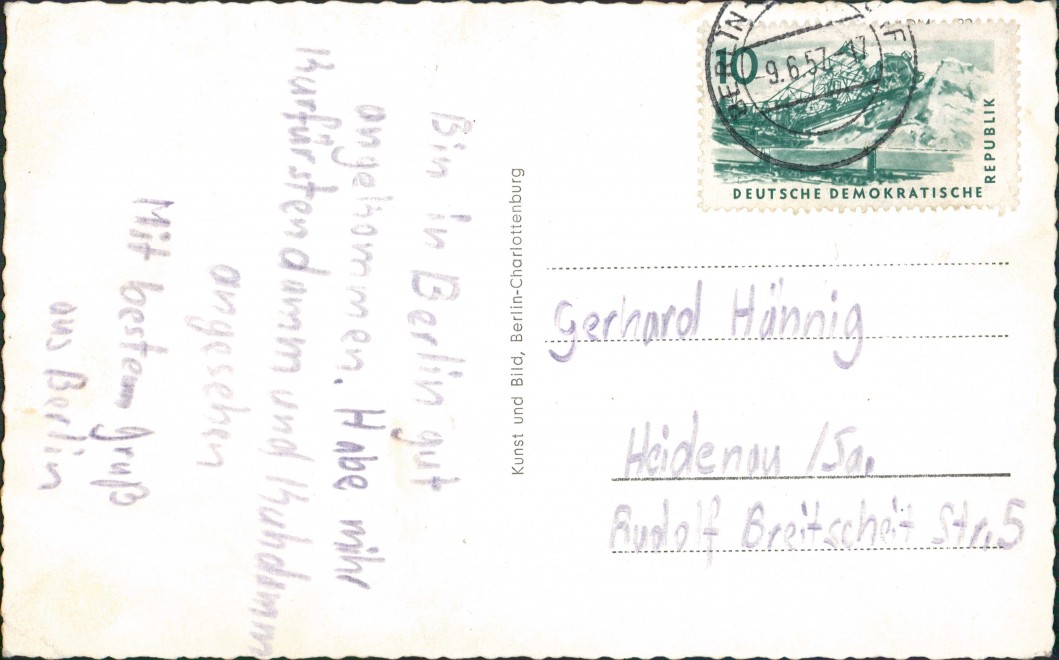 Bin in Berlin gut
angekommen. Habe mihr
Kurfürstendamm und Kuhdamm
angesehen
Mit bestem Gruß
aus Berlin
Kunst und Bild, Berlin-Charlottenburg
10
BERLIN
9.6.57-17
DEUTSCHE DEMOKRATISCHE
REPUBLIK
Gerhard Hännig
Heidenau /Sa.
Rudolf Breitscheit Str. 5